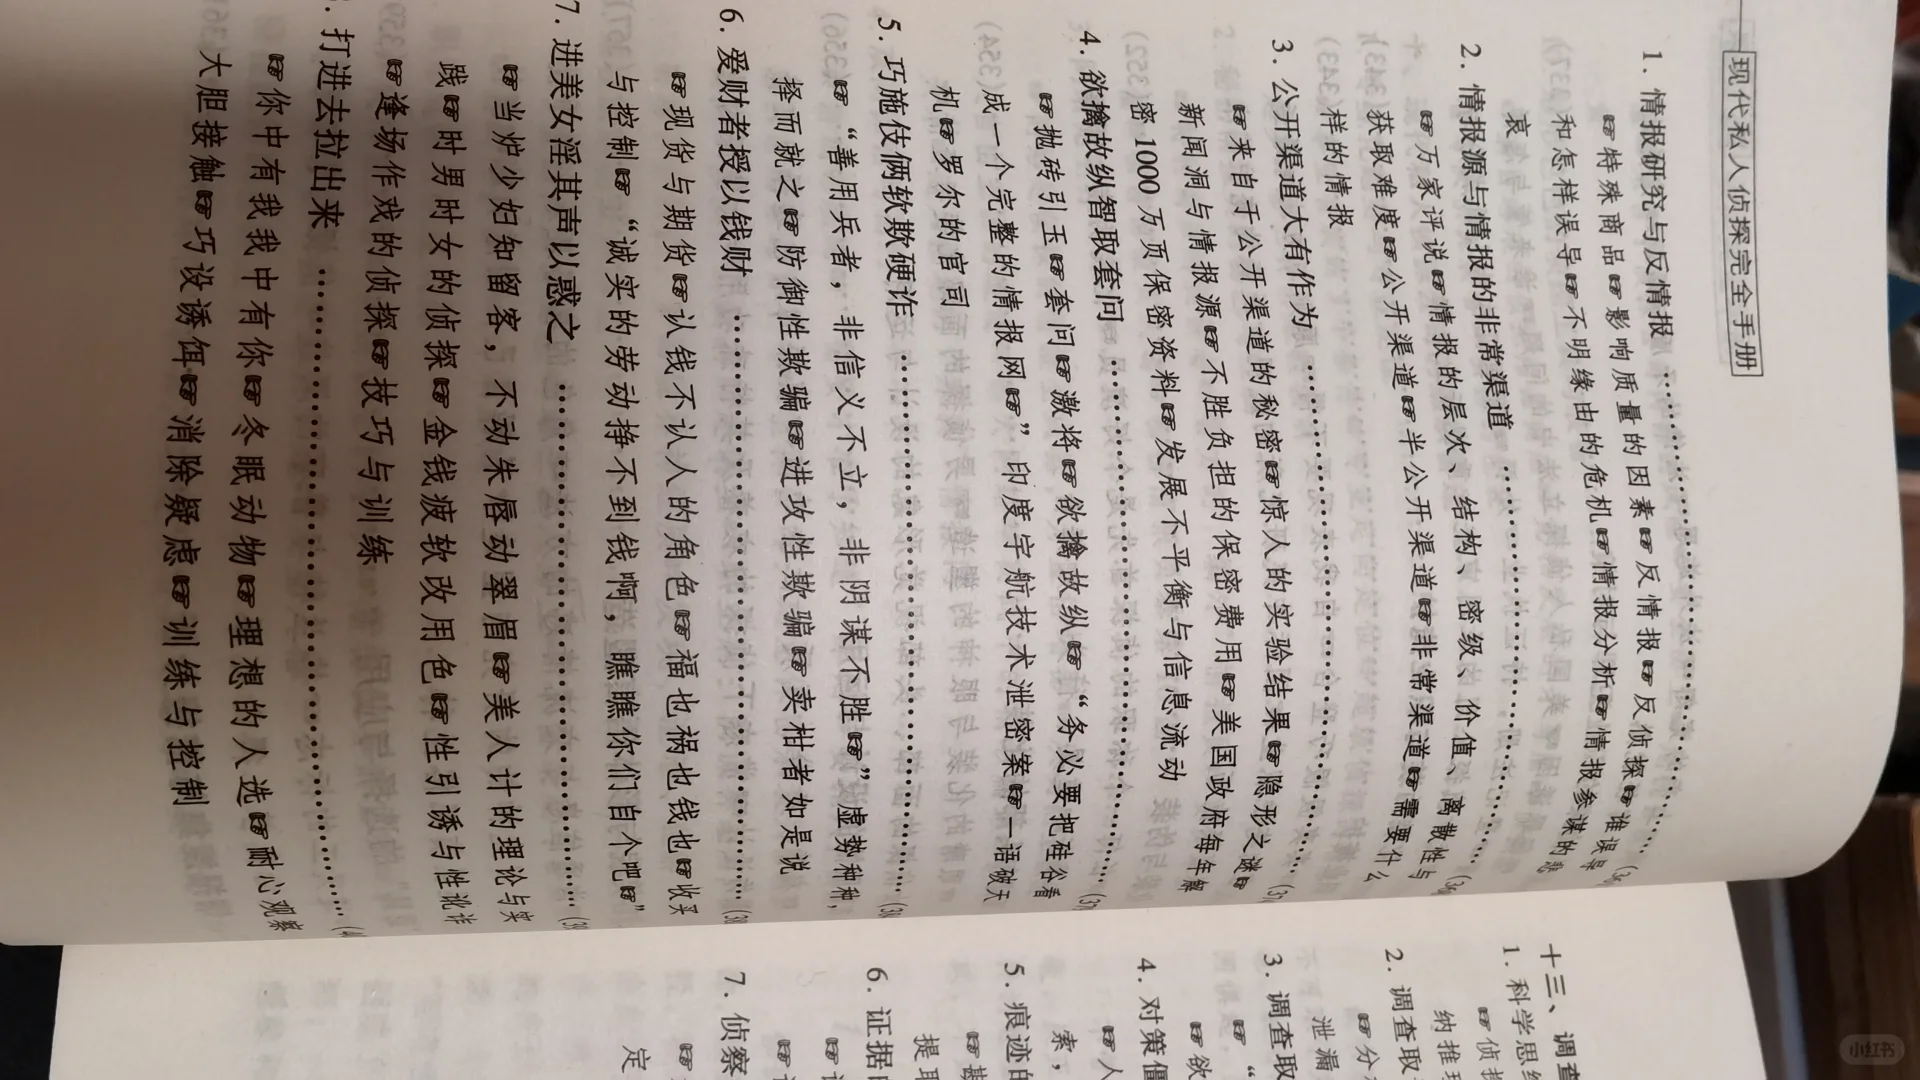 现代私人侦探完全手册
1. 情报研究与反情报
☞特殊商品☞影响质量的因素☞反情报☞反侦探☞谁误导
和怎样误导☞不明缘由的危机☞情报分析☞情报参谋的悲
哀
2. 情报源与情报的非常渠道
☞万家评说☞情报的层次、结构、密级、价值、离散性与
获取难度☞公开渠道☞半公开渠道☞非常渠道☞需要什么
样的情报
3. 公开渠道大有作为
☞来自于公开渠道的秘密☞惊人的实验结果☞隐形之谜☞
新闻洞与情报源☞不胜负担的保密费用☞美国政府每年解
密 1000 万页保密资料☞发展不平衡与信息流动
4. 欲擒故纵智取套问
☞抛砖引玉☞套问☞激将☞欲擒故纵☞“务必要把硅谷看
成一个完整的情报网☞”印度宇航技术泄密案☞一语破天
机☞罗尔的官司
5. 巧施伎俩软欺硬诈
☞“善用兵者，非信义不立，非阴谋不胜☞”虚势种种，
择而就之☞防御性欺骗☞进攻性欺骗☞卖柑者如是说
6. 爱财者授以钱财
☞现货与期货☞认钱不认人的角色☞福也祸也钱也☞收买
与控制☞“诚实的劳动挣不到钱啊，瞧瞧你们自个吧☞”
7. 进美女淫其声以惑之
☞当炉少妇知留客，不动朱唇动翠眉☞美人计的理论与实
践☞时男时女的侦探☞金钱疲软改用色☞性引诱与性讹诈
☞逢场作戏的侦探☞技巧与训练
打进去拉出来
☞你中有我我中有你☞冬眠动物☞理想的人选☞耐心观察
大胆接触☞巧设诱饵☞消除疑虑☞训练与控制
十三、调查
1. 科学思维
☞侦探
纳推理
2. 调查取
☞分
泄漏
3. 调查取
☞“
☞欲
4. 对策偃
☞人
索，
5. 痕迹的
☞勘
提取
6. 证据
7. 侦察
定
小红书